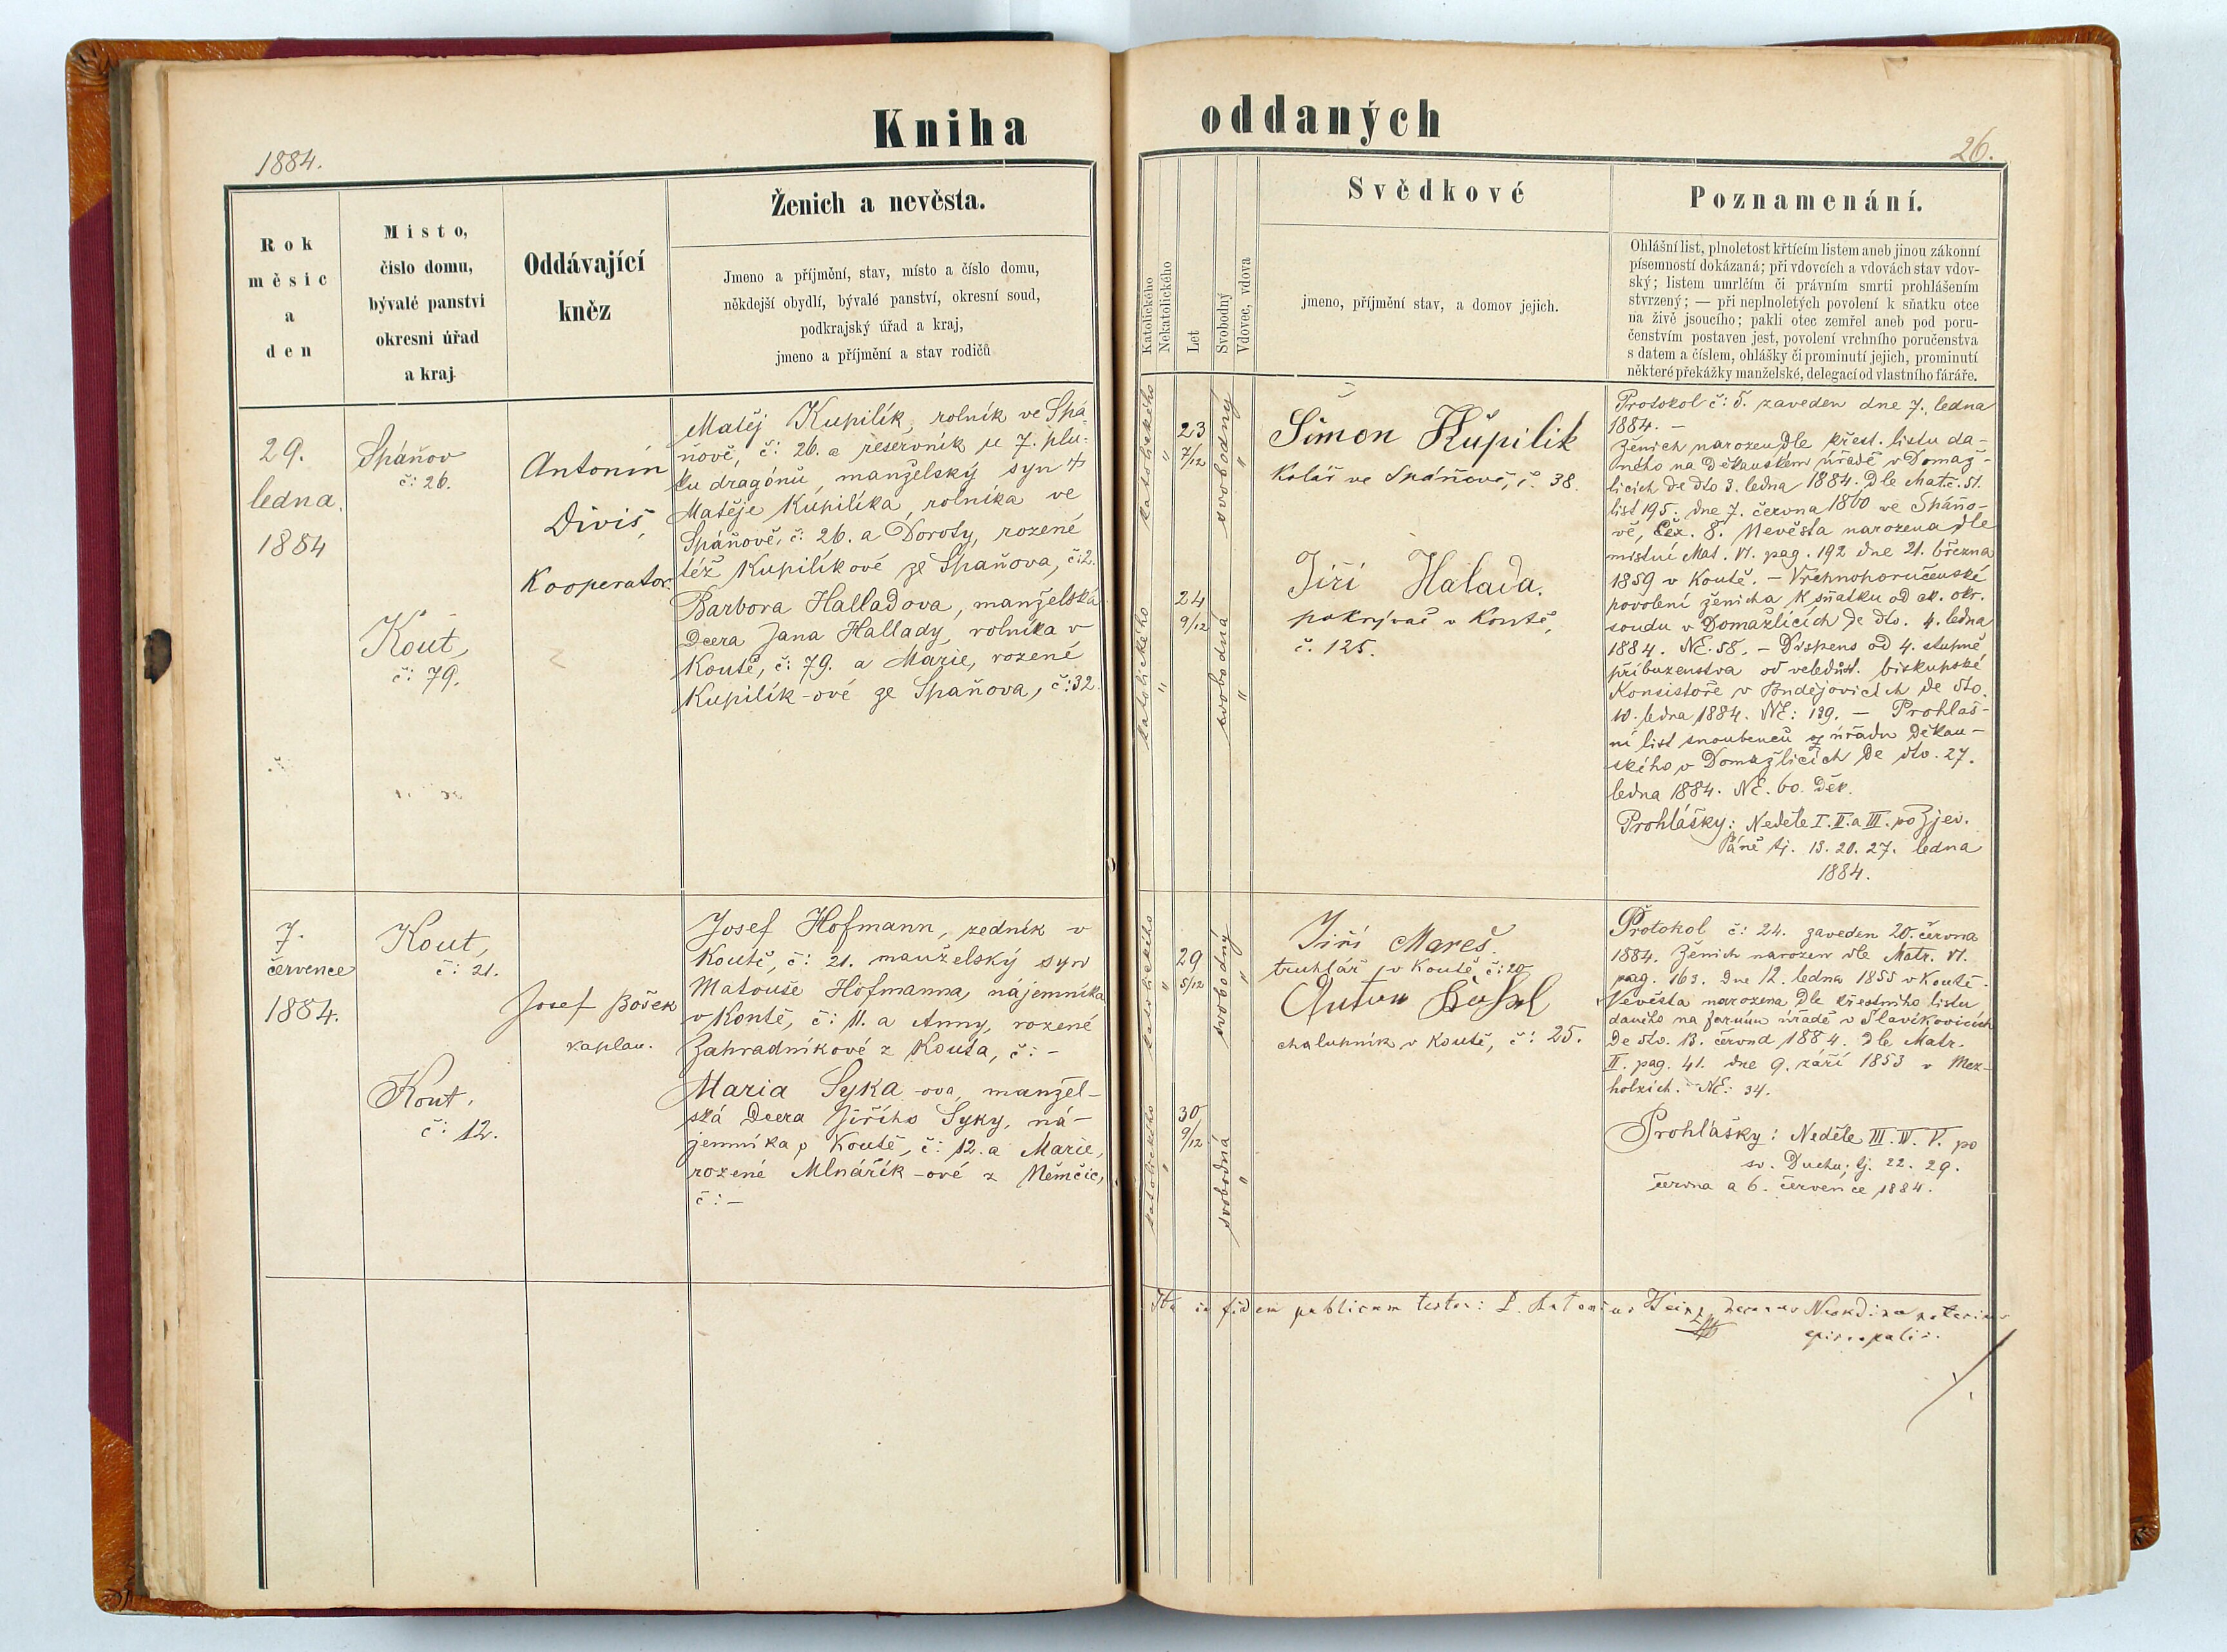 Kniha
oddaných
1884.
26.
Rok
měsíc
a
den
Misto,
čislo domu,
bývalé panství
okresni úřad
a kraj
Oddávající
kněz
Ženich a nevěsta.
Jmeno a příjmění, stav, místo a číslo domu,
někdejší obydlí, bývalé panství, okresní soud,
podkrajský úřad a kraj,
jmeno a příjmění a stav rodičů
Katolického
Nekatolického
Let
Svobodný
Vdovec, vdova
Svědkové
jmeno, příjmění stav, a domov jejich.
Poznamenání.
Ohlášní list, plnoletost křtícím listem aneb jinou zákonní
písemností dokázaná; při vdovcích a vdovách stav vdov-
ský; listem umrlčím či právním smrti prohlášením
stvrzený; — při neplnoletých povolení k sňatku otce
na živě jsoucího; pakli otec zemřel aneb pod poru-
čenstvím postaven jest, povolení vrchního poručenstva
s datem a číslem, ohlášky či prominutí jejich, prominutí
některé překážky manželské, delegací od vlastního faráře.
29.
ledna
1884
Spáňov
č: 26.
Kout,
č: 79.
Antonín
Diviš,
Kooperator.
Matěj Kupilík, rolník ve Spá-
ňově, č: 26. a reservník u 7. plu-
ku dragónů, manželský syn †
Matěje Kupilíka, rolníka ve
Spáňově, č: 26. a Doroty, rozené
též Kupilíkové ze Spaňova, č: 2.
Barbora Halladova, manželská
dcera Jana Hallady, rolníka v
Koutě, č: 79. a Marie, rozené
Kupilík-ové ze Spaňova, č: 32.
katolického "
23
7/12
svobodný "
katolického "
24
9/12
svobodná "
Šimon Kupilik
Kolář ve Spáňově, č. 38.
Jiří Halada.
pokrývač v Koutě,
č. 125.
Protokol č: 5. zaveden dne 7. ledna
1884. —
Ženich narozen dle křest. listu da-
ného na děkanském úřadě v Domaž-
licích de dto 3. ledna 1884. dle Mat. č. st.
list 195. dne 7. června 1860 ve Spáňo-
vě, čís. 8. Nevěsta narozena dle
místní Mat. VI. pag. 192 dne 21. března
1859 v Koutě. — Vrchnoporučenské
povolení ženicha k sňatku od ck. okr.
soudu v Domažlicích de dto. 4. ledna
1884. NE. 58. — Dispens od 4. stupně
příbuzenstva od veledůst. biskupské
Konsistoře v Budějovicích de dto.
10. ledna 1884. NE: 139. — Prohláš-
ní list snoubenců z úřadu děkan-
ského v Domažlicích de dto. 27.
ledna 1884. NE. 60. děk.
Prohlášky: Neděle I. II. a III. po Zjev.
Páně tj. 13. 20. 27. ledna
1884.
7.
července
1884.
Kout,
č: 21.
Kout,
č: 12.
Josef Bošek
kaplan.
Josef Hofmann, zedník v
Koutě, č: 21. manželský syn
Matouše Hofmanna, nájemníka
v Koutě, č: 11. a Anny, rozené
Zahradníkové z Kouta, č: —
Maria Syka-ova, manžel-
ská dcera Jiřího Syky, ná-
jemníka v Koutě, č: 12. a Marie,
rozené Mlnářík-ové z Němčic,
č: —
katolického "
29
5/12
svobodný "
katolického "
30
9/12
svobodná "
Jiří Mareš
truhlář v Koutě č: 20
Anton
chalupník v Koutě, č: 25.
Protokol č: 24. zaveden 20. června
1884. Ženich narozen dle Matr. VI.
pag. 163. dne 12. ledna 1855 v Koutě.
Nevěsta narozena dle křestního listu
daného na farním úřadě v Slavíkovicích
de dto. 13. června 1884. dle Matr.
II. pag. 41. dne 9. září 1853 v Mez-
holzích. NE: 34.
Prohlášky: Neděle III. IV. V. po
sv. Duchu; tj. 22. 29.
června a 6. července 1884.
Ita in fidem publicam testor: P. Antonius Heinz, decanus Neokdinae notarius
episcopalis.